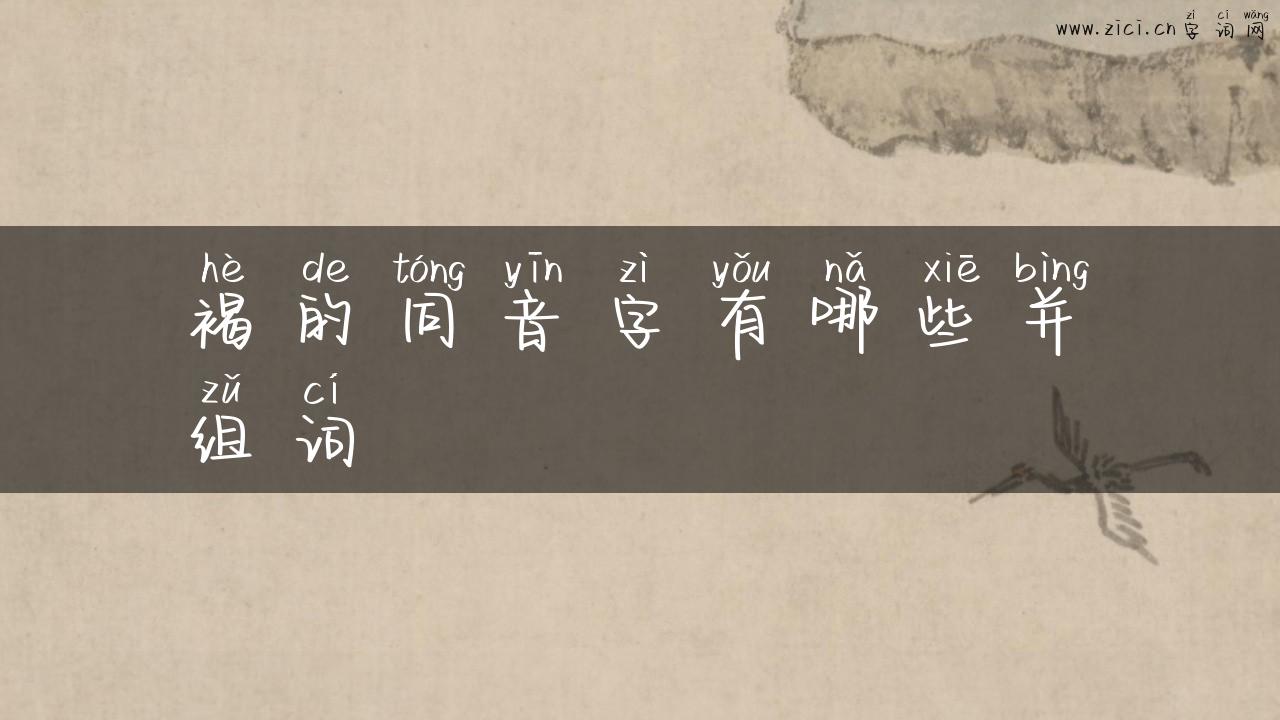 zì cí wǎng
www.zici.cn字词网
hè de tóng yīn zì yǒu nǎ xiē bìng
褐的同音字有哪些并
zǔ cí
组词